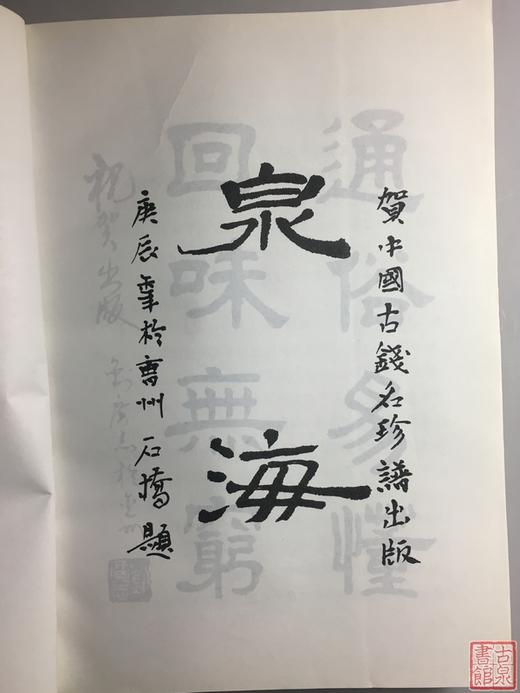 賀中國古錢名珍譜出版
泉海
庚辰年於曹州 石撟題
通俗易懂
回味無窮
祝賀出版
古泉
書館